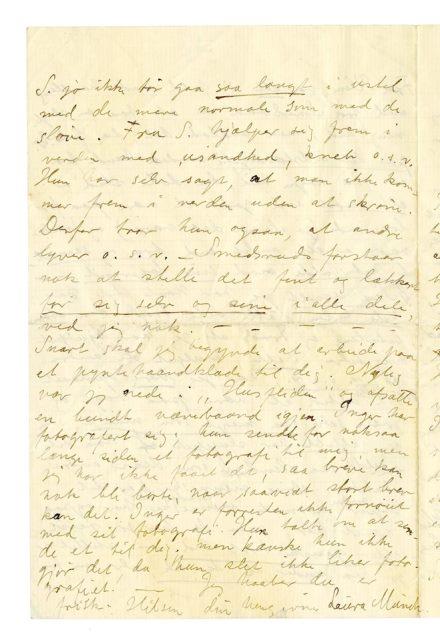 S. jo ikke tør gaa saa langt i ustel
med de mere normale som med de
sløve. Fru S. hjælper sig frem i
verden med usandhed, kneb o.s.v.
Hun har selv sagt, at man ikke kom-
mer frem i verden uden at skrøne.
Derfor tror hun ogsaa, at andre
lyver o.s.v. — Smedsruds forstaar
nok at stelle det fint og lækkert
for sig selv og sine i alle dele,
ved jeg nok. — — — —
Snart skal jeg begynde at arbeide paa
et pyntehaandklæde til dig. Nylig
var jeg nede i „Husfliden" og afsatte
en bundt vævebaand igjen. Inger har
fotografert sig; hun sendte for noksaa
længe siden et fotografi til mig, men
jeg har ikke faaet det, saa breve kan
nok bli borte, naar saavidt stort brev
kan det. Inger er forresten ikke fornøiet
med sit fotografi. Hun talte om at sen-
de et til dig, men kanske hun ikke
gjør det, da hun slet ikke liker foto-
grafiet. Jeg haaber du er
frisk. — Hilsen din heng. Laura Munch.